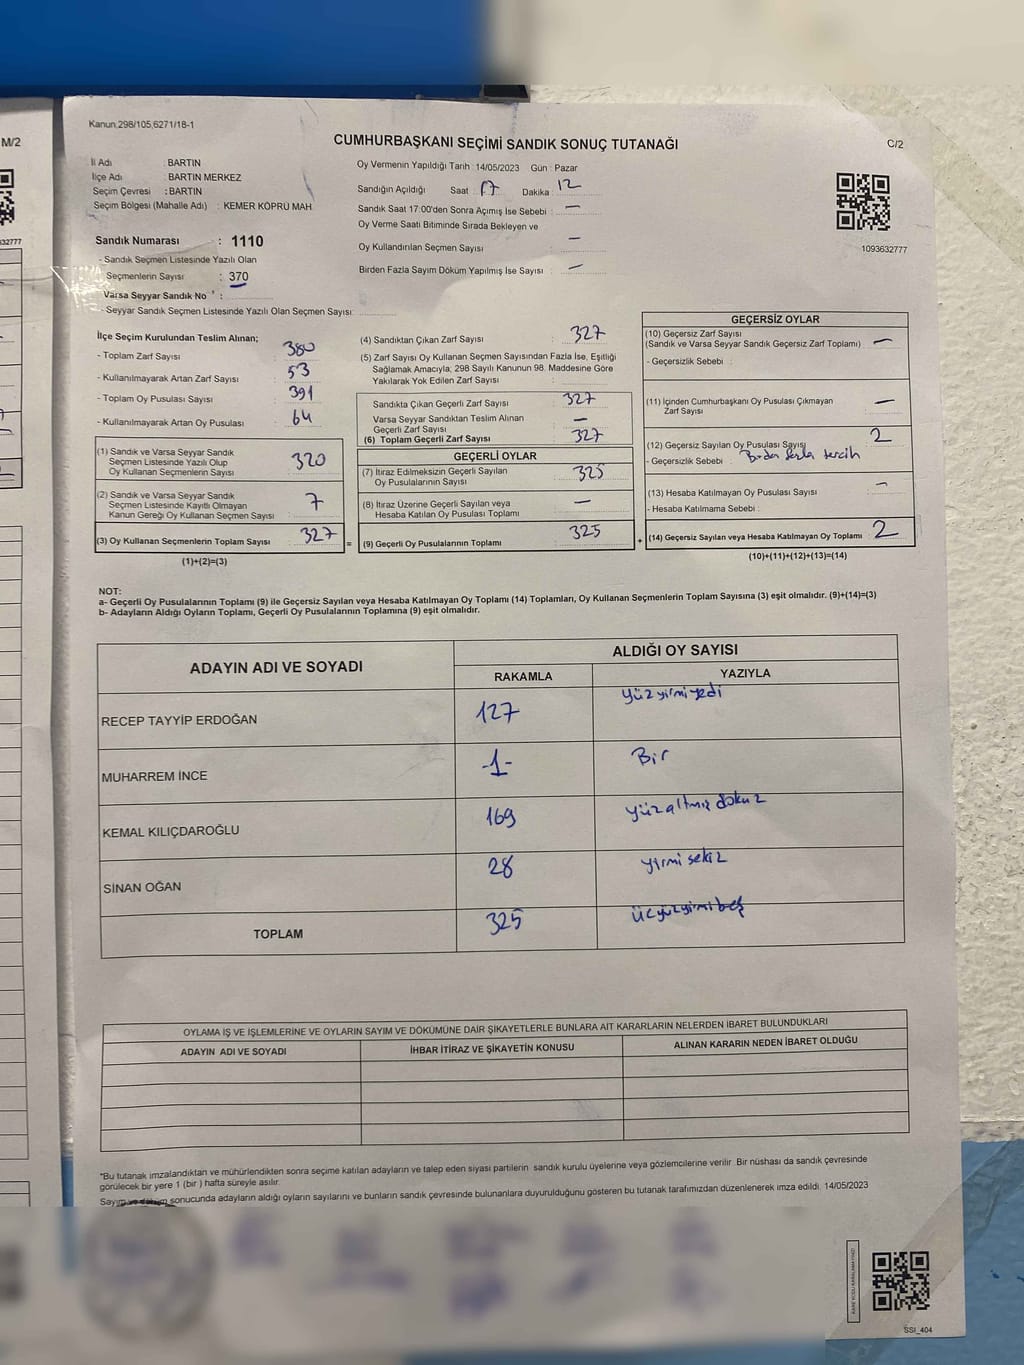 M/2
32777
Kanun:298/105,6271/18-1
CUMHURBAŞKANI SEÇİMİ SANDIK SONUÇ TUTANAĞI
C/2
İl Adı : BARTIN
İlçe Adı : BARTIN MERKEZ
Seçim Çevresi : BARTIN
Seçim Bölgesi (Mahalle Adı) : KEMER KÖPRÜ MAH.
Sandık Numarası : 1110
- Sandık Seçmen Listesinde Yazılı Olan
Seçmenlerin Sayısı : 370
Varsa Seyyar Sandık No * :
- Seyyar Sandık Seçmen Listesinde Yazılı Olan Seçmen Sayısı:
Oy Vermenin Yapıldığı Tarih : 14/05/2023 Gün : Pazar
Sandığın Açıldığı Saat : 17 Dakika : 12
Sandık Saat 17:00'den Sonra Açımış İse Sebebi : —
Oy Verme Saati Bitiminde Sırada Bekleyen ve
Oy Kullandırılan Seçmen Sayısı : —
Birden Fazla Sayım Döküm Yapılmış İse Sayısı : —
1093632777
İlçe Seçim Kurulundan Teslim Alınan;
- Toplam Zarf Sayısı : 380
- Kullanılmayarak Artan Zarf Sayısı : 53
- Toplam Oy Pusulası Sayısı : 391
- Kullanılmayarak Artan Oy Pusulası : 64
(1) Sandık ve Varsa Seyyar Sandık
Seçmen Listesinde Yazılı Olup
Oy Kullanan Seçmenlerin Sayısı : 320
(2) Sandık ve Varsa Seyyar Sandık
Seçmen Listesinde Kayıtlı Olmayan
Kanun Gereği Oy Kullanan Seçmen Sayısı : 7
(3) Oy Kullanan Seçmenlerin Toplam Sayısı : 327
(1)+(2)=(3)
=
(4) Sandıktan Çıkan Zarf Sayısı : 327
(5) Zarf Sayısı Oy Kullanan Seçmen Sayısından Fazla İse, Eşitliği
Sağlamak Amacıyla; 298 Sayılı Kanunun 98. Maddesine Göre
Yakılarak Yok Edilen Zarf Sayısı :
Sandıkta Çıkan Geçerli Zarf Sayısı : 327
Varsa Seyyar Sandıktan Teslim Alınan
Geçerli Zarf Sayısı : —
(6) Toplam Geçerli Zarf Sayısı : 327
GEÇERLİ OYLAR
(7) İtiraz Edilmeksizin Geçerli Sayılan
Oy Pusulalarının Sayısı : 325
(8) İtiraz Üzerine Geçerli Sayılan veya
Hesaba Katılan Oy Pusulası Toplamı : —
(9) Geçerli Oy Pusulalarının Toplamı : 325
+
GEÇERSİZ OYLAR
(10) Geçersiz Zarf Sayısı
(Sandık ve Varsa Seyyar Sandık Geçersiz Zarf Toplamı) : —
- Geçersizlik Sebebi :
(11) İçinden Cumhurbaşkanı Oy Pusulası Çıkmayan
Zarf Sayısı : —
(12) Geçersiz Sayılan Oy Pusulası Sayısı : 2
- Geçersizlik Sebebi : Birden fazla tercih
(13) Hesaba Katılmayan Oy Pusulası Sayısı : —
- Hesaba Katılmama Sebebi :
(14) Geçersiz Sayılan veya Hesaba Katılmayan Oy Toplamı : 2
(10)+(11)+(12)+(13)=(14)
NOT:
a- Geçerli Oy Pusulalarının Toplamı (9) ile Geçersiz Sayılan veya Hesaba Katılmayan Oy Toplamı (14) Toplamları, Oy Kullanan Seçmenlerin Toplam Sayısına (3) eşit olmalıdır. (9)+(14)=(3)
b- Adayların Aldığı Oyların Toplamı, Geçerli Oy Pusulalarının Toplamına (9) eşit olmalıdır.
ADAYIN ADI VE SOYADI
ALDIĞI OY SAYISI
RAKAMLA YAZIYLA
RECEP TAYYİP ERDOĞAN 127 yüzyirmiyedi
MUHARREM İNCE -1- Bir
KEMAL KILIÇDAROĞLU 169 yüzaltmışdokuz
SİNAN OĞAN 28 yirmisekiz
TOPLAM 325 üçyüzyirmibeş
OYLAMA İŞ VE İŞLEMLERİNE VE OYLARIN SAYIM VE DÖKÜMÜNE DAİR ŞİKAYETLERLE BUNLARA AİT KARARLARIN NELERDEN İBARET BULUNDUKLARI
ADAYIN ADI VE SOYADI İHBAR İTİRAZ VE ŞİKAYETİN KONUSU ALINAN KARARIN NEDEN İBARET OLDUĞU
*Bu tutanak imzalandıktan ve mühürlendikten sonra seçime katılan adayların ve talep eden siyasi partilerin sandık kurulu üyelerine veya gözlemcilerine verilir. Bir nüshası da sandık çevresinde
görülecek bir yere 1 (bir ) hafta süreyle asılır.
Sayım ve döküm sonucunda adayların aldığı oyların sayılarını ve bunların sandık çevresinde bulunanlara duyurulduğunu gösteren bu tutanak tarafımızdan düzenlenerek imza edildi. 14/05/2023
SSI_404